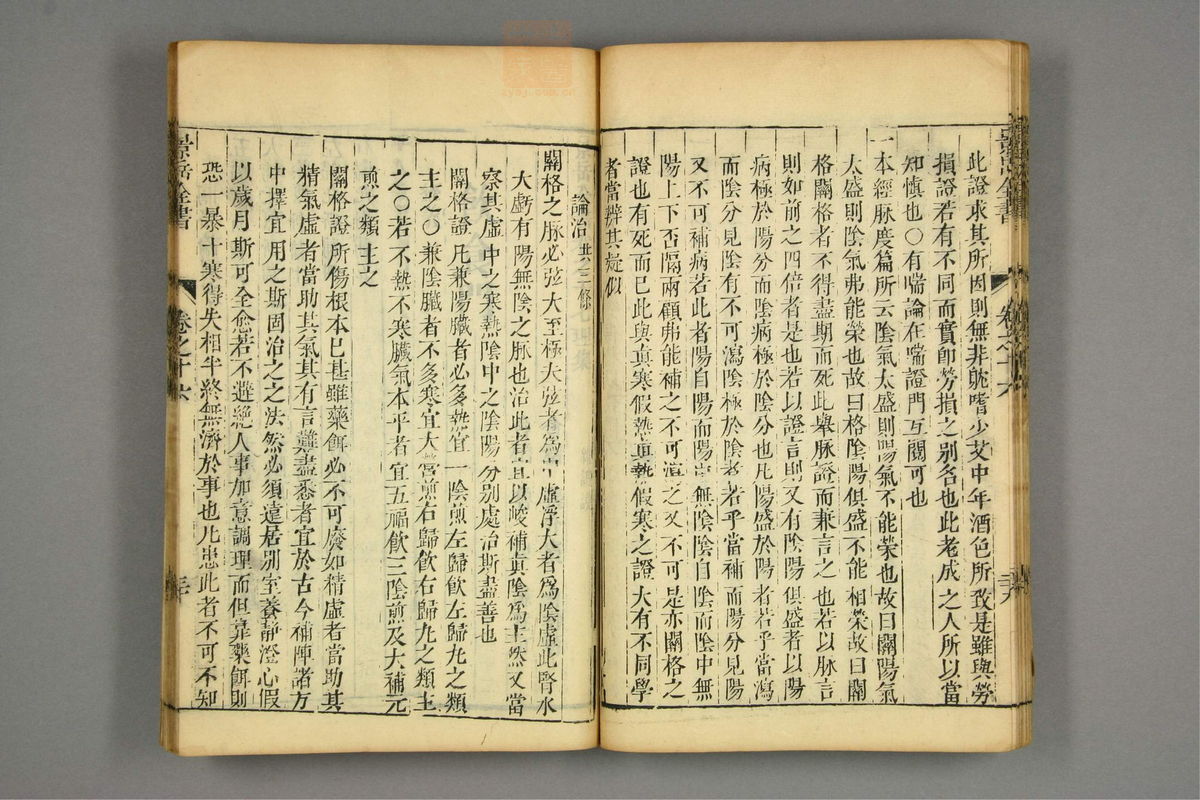 此證求其所因則無非躭嗜少艾中年酒色所致是雖與勞
損證若有不同而實即勞損之别名也此老成之人所以當
知愼也〇有喘論在喘證門互閱可也
一本經脉度篇所云陰氣太盛則陽氣不能榮也故曰關陽氣
太盛則陰氣弗能榮也故曰格陰陽俱盛不能相榮故曰關
格關格者不得盡期而死此舉脉證而兼言之也若以脉言
則如前之四倍者是也若以證言則又有陰陽俱盛者以陽
病極於陽分而陰病極於陰分也凡陽盛於陽者若乎當瀉
而陰分見陰有不可瀉陰極於陰者若乎當補而陽分見陽
又不可補病若此者陽自陽而陽中無陰陰自陰而陰中無
陽上下否隔兩顧弗能補之不可瀉之又不可是亦關格之
證也有死而已此與眞寒假熱眞熱假寒之證大有不同學
者當辨其疑似
論治 共三條
關格之脉必弦大至極夫弦者爲中虛浮大者爲陰虛此腎水
大虧有陽無陰之脉也治此者宜以峻補眞陰爲主然又當
察其虛中之寒熱陰中之陰陽分别處治斯盡善也
關格證凡兼陽臟者必多熱宜一陰煎左歸飲左歸丸之類
主之〇兼陰臟者不多寒宜大營煎右歸飲右歸丸之類主
之〇若不熱不寒臟氣本平者宜五福飲三陰煎及大補元
煎之類主之
關格證所傷根本已甚雖藥餌必不可廢如精虛者當助其
精氣虛者當助其氣其有言難盡悉者宜於古今補陣諸方
中擇宜用之斯固治之之法然必須遠居别室養靜澄心假
以歲月斯可全愈若不避絶人事加意調理而但靠藥餌則
恐一暴十寒得失相半終無濟於事也凡患此者不可不知
景岳全書
卷之十六